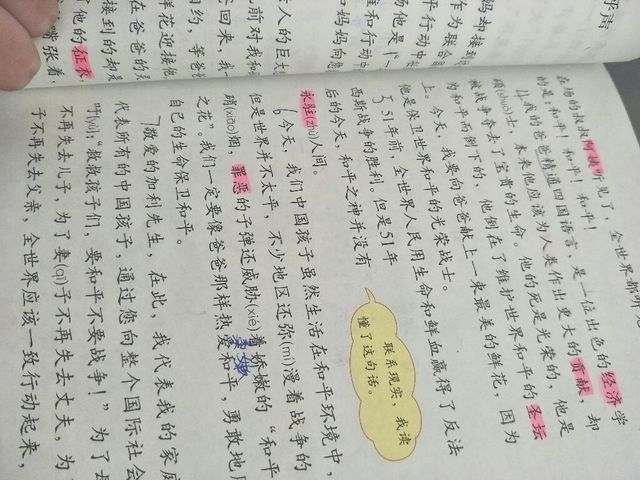 妈却接到
平行动中
维和行动中
和妈妈向爸
在场的叔叔阿姨听见了，全世界都听见
的是：和平！和平！和平！
4我的爸爸精通四国语言，是一位出色的经济学
硕(shuò)士，本来他应该为人类作出更大的贡献，却
被战争夺去了宝贵的生命。他的死是光荣的，他是
为和平而倒下的，他倒在了维护世界和平的圣坛
上。今天，我要向爸爸献上一束最美的鲜花，因为
他是保卫世界和平的光荣战士。
5 51年前，全世界人民用生命和鲜血赢得了反法
西斯战争的胜利，但是51年
后的今天，和平之神并没有
永驻(zhù)人间。
联系现实，我读
懂了这句话。
6今天，我们中国孩子虽然生活在和平环境中，
但是世界并不太平，不少地区还弥(mí)漫着战争的
硝(xiāo)烟，罪恶的子弹还威胁(xié)着娇嫩的“和平
之花”。我们一定要像爸爸那样热爱和平，勇敢地
自己的生命保卫和平。
7敬爱的加利先生，在此，我代表我的家庭
代表所有的中国孩子，通过您向整个国际社会
吁(yù)：“救救孩子们，要和平不要战争！”为了
不再失去儿子，为了妻(qī)子不再失去丈夫，为
子不再失去父亲，全世界应该一致行动起来，